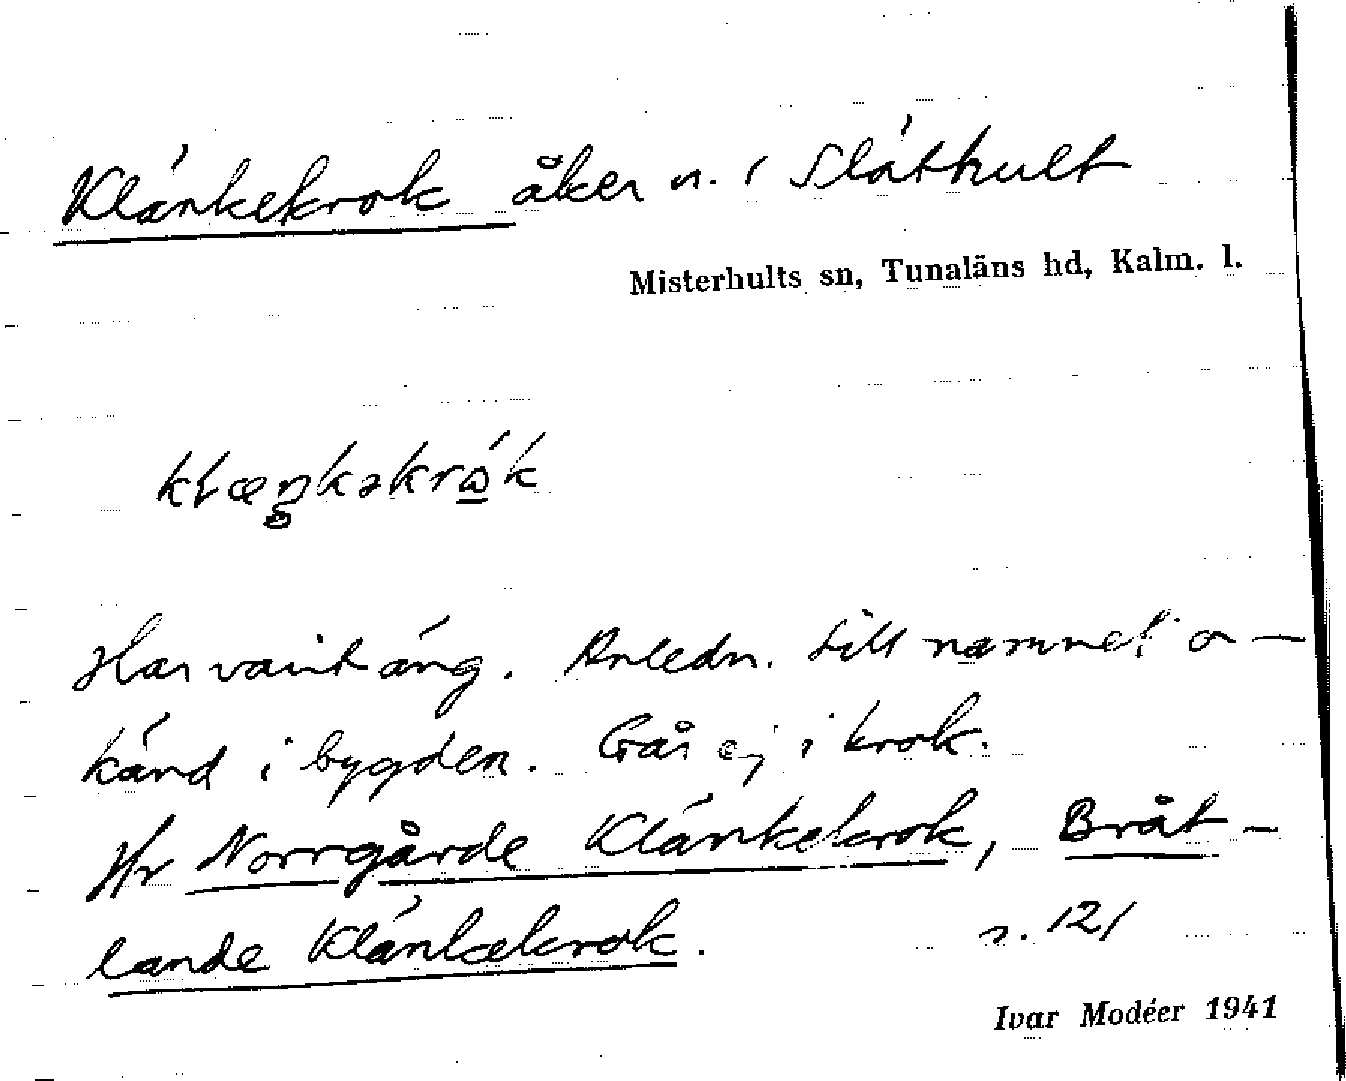 Klänkekrok åker n. i Släthult
Misterhults sn, Tunaläns hd, Kalm. l.
klæŋkəkrɷ́k
Har varit äng. Anledn. till namnet o-
känd i bygden. Går ej i krok.
Hr Norrgårde Klänkekrok, Bråt-
lande Klänkekrok. s. 121
Ivar Modéer 1941